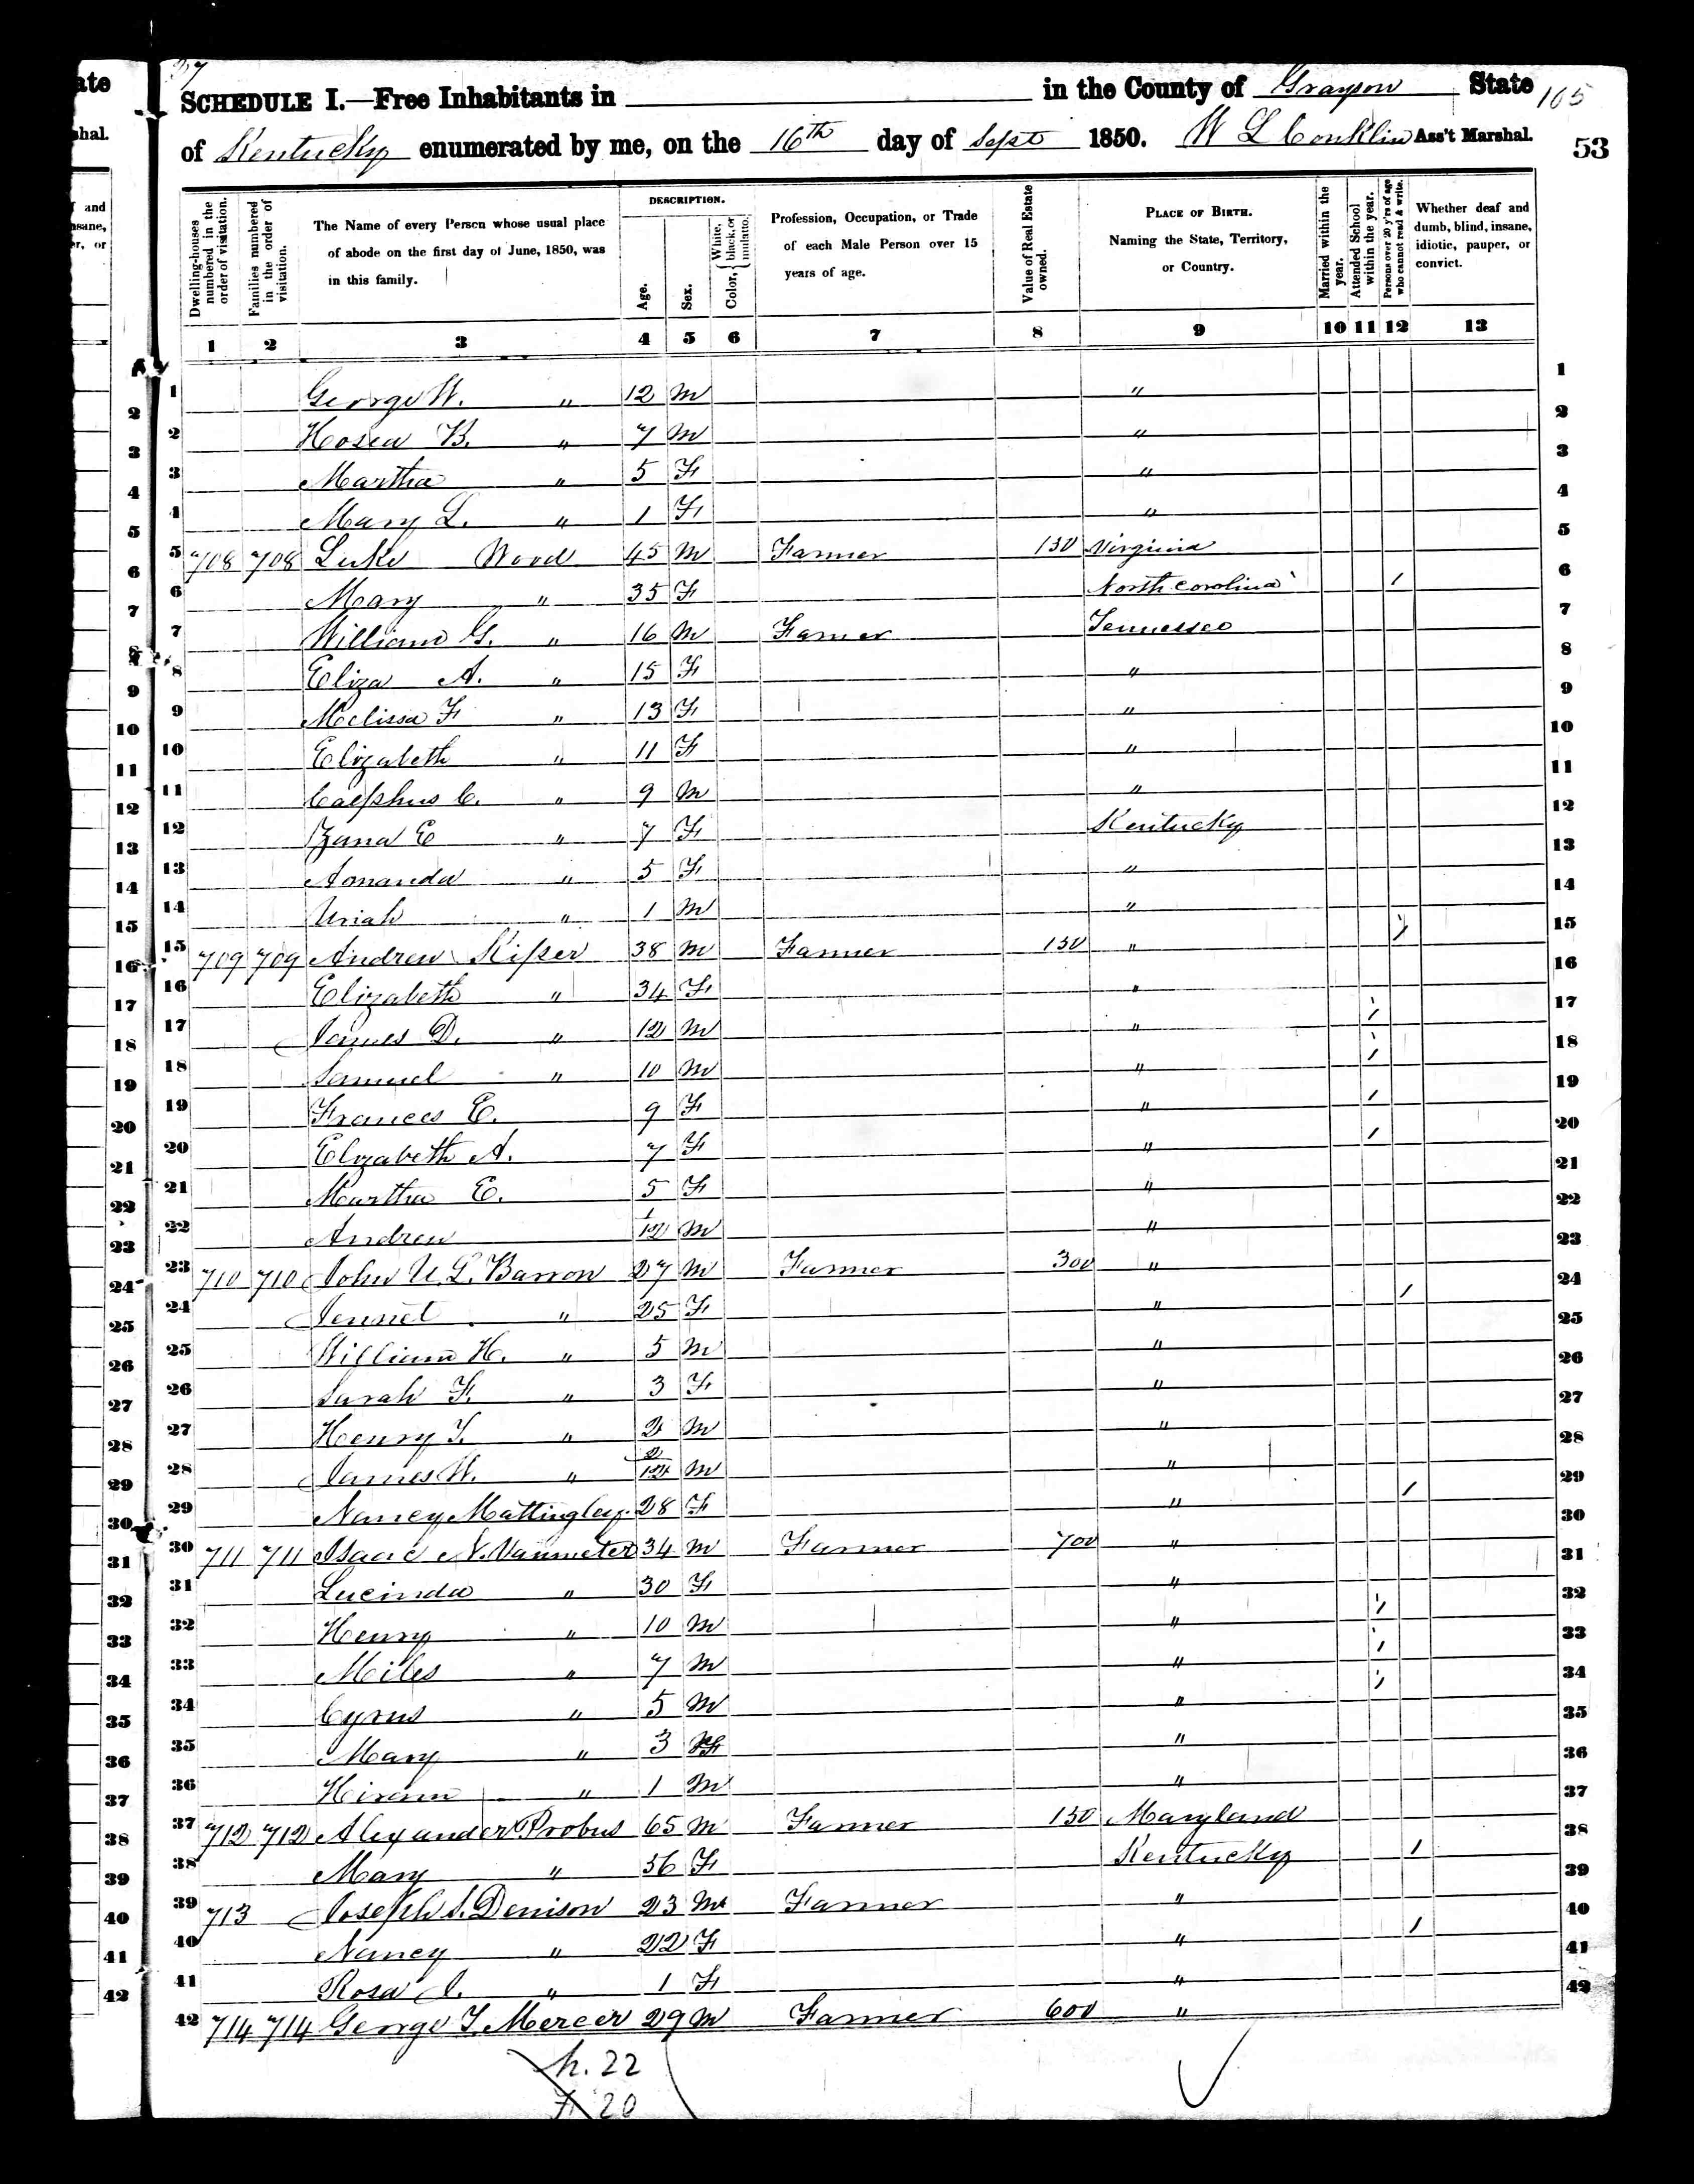 27
SCHEDULE I.—Free Inhabitants in in the County of Grayson State 105
of Kentucky enumerated by me, on the 16th day of Sept 1850. W L Conklin Ass't Marshal. 53
Dwelling-houses numbered in the order of visitation.
Families numbered in the order of visitation.
The Name of every Person whose usual place of abode on the first day of June, 1850, was in this family.
DESCRIPTION.
Age.
Sex.
Color, { White, black, or mulatto.
Profession, Occupation, or Trade of each Male Person over 15 years of age.
Value of Real Estate owned.
PLACE OF BIRTH. Naming the State, Territory, or Country.
Married within the year.
Attended School within the year.
Persons over 20 y'rs of age who cannot read & write.
Whether deaf and dumb, blind, insane, idiotic, pauper, or convict.
1 2 3 4 5 6 7 8 9 10 11 12 13
1 George W. " 12 M " 1
2 Hosea B. " 7 M " 2
3 Martha " 5 F " 3
4 Mary L. " 1 F " 4
5 708 708 Luke Wood 45 M Farmer 150 Virginia 5
6 Mary " 35 F North Carolina / 6
7 William G. " 16 M Farmer Tennessee 7
8 Eliza A. " 15 F " 8
9 Melissa F " 13 F " 9
10 Elizabeth " 11 F " 10
11 C. " 9 M " 11
12 Zana E " 7 F Kentucky 12
13 Amanda " 5 F " 13
14 Uriah " 1 M " 14
15 709 709 Andrew Kisser 38 M Farmer 150 " / 15
16 Elizabeth " 34 F " 16
17 James D. " 12 M " / 17
18 Samuel " 10 M " / 18
19 Frances E. 9 F " / 19
20 Elizabeth A. 7 F " / 20
21 Martha E. 5 F " 21
22 Andrew 1/12 M " 22
23 710 710 John U. L. Barron 27 M Farmer 300 " 23
24 Jennet " 25 F " / 24
25 William H. " 5 M " 25
26 Sarah F. " 3 F " 26
27 Henry T. " 2 M " 27
28 James W. " 2/12 M " 28
29 Nancy Mattingley 28 F " / 29
30 711 711 Isaac N. Vanmeter 34 M Farmer 700 " 30
31 Lucinda " 30 F " 31
32 Henry " 10 M " / 32
33 Miles " 7 M " / 33
34 Cyrus " 5 M " / 34
35 Mary " 3 F " 35
36 Hiram " 1 M " 36
37 712 712 Alexander Probus 65 M Farmer 150 Maryland 37
38 Mary " 56 F Kentucky / 38
39 713 Joseph S. Denison 23 M Farmer " 39
40 Nancy " 22 F " / 40
41 Rosa J. " 1 F " 41
42 714 714 George T. Mercer 29 M Farmer 600 " 42
M. 22
F 20